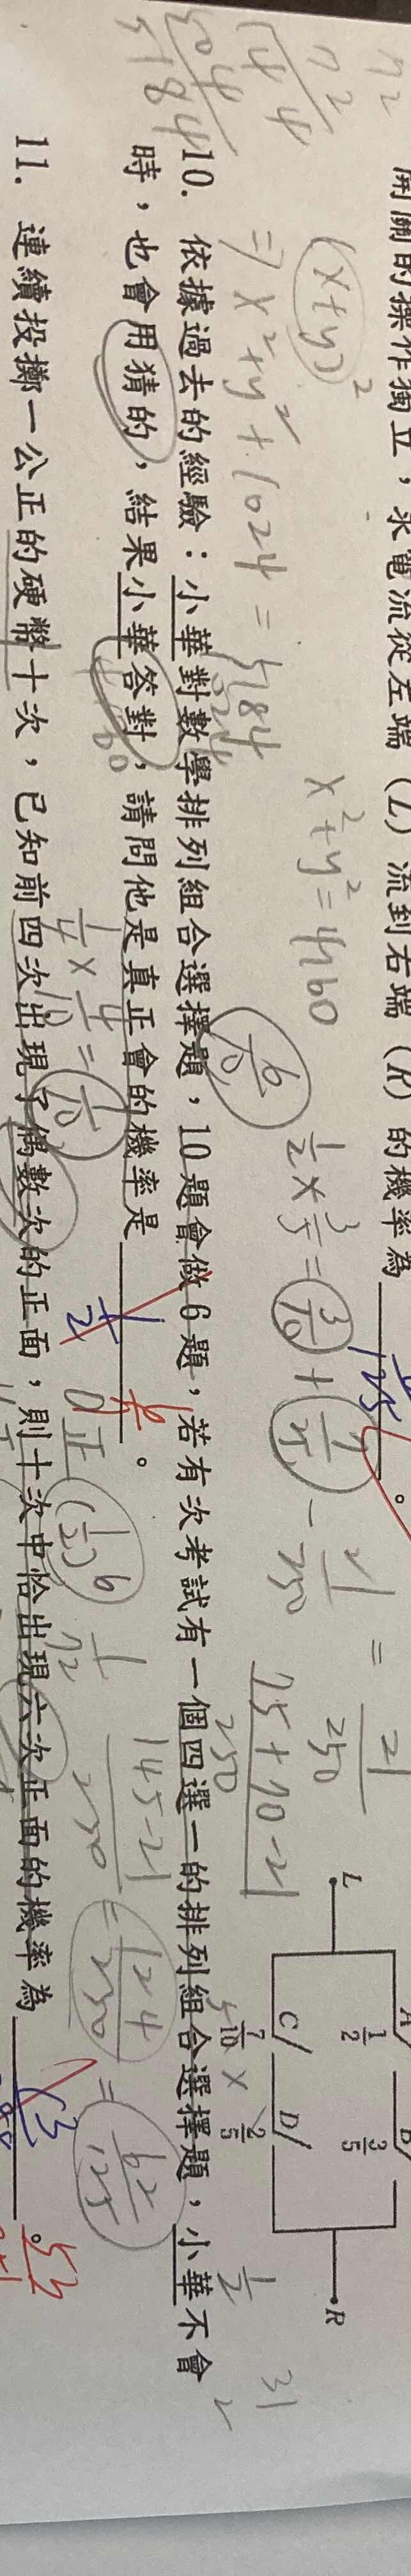 開關的操作獨立，求電流從左端（L）流到右端（R）的機率為
L
R
C
D
1/2
3/5
7/10
2/5
(x+y)²
x²+y²=4160
⇒ x²+y²+1024=5184
6/10
1/2×3/5=3/10+7/25-21/250=21/250
75+70-21
250
10. 依據過去的經驗：小華對數學排列組合選擇題，10題會做6題，若有次考試有一個四選一的排列組合選擇題，小華不會
時，也會用猜的，結果小華答對，請問他是真正會的機率是 。
1/4×4/10=1/10
145-21
250
=124/250=62/125
11. 連續投擲一公正的硬幣十次，已知前四次出現了偶數次的正面，則十次中恰出現六次正面的機率為 。